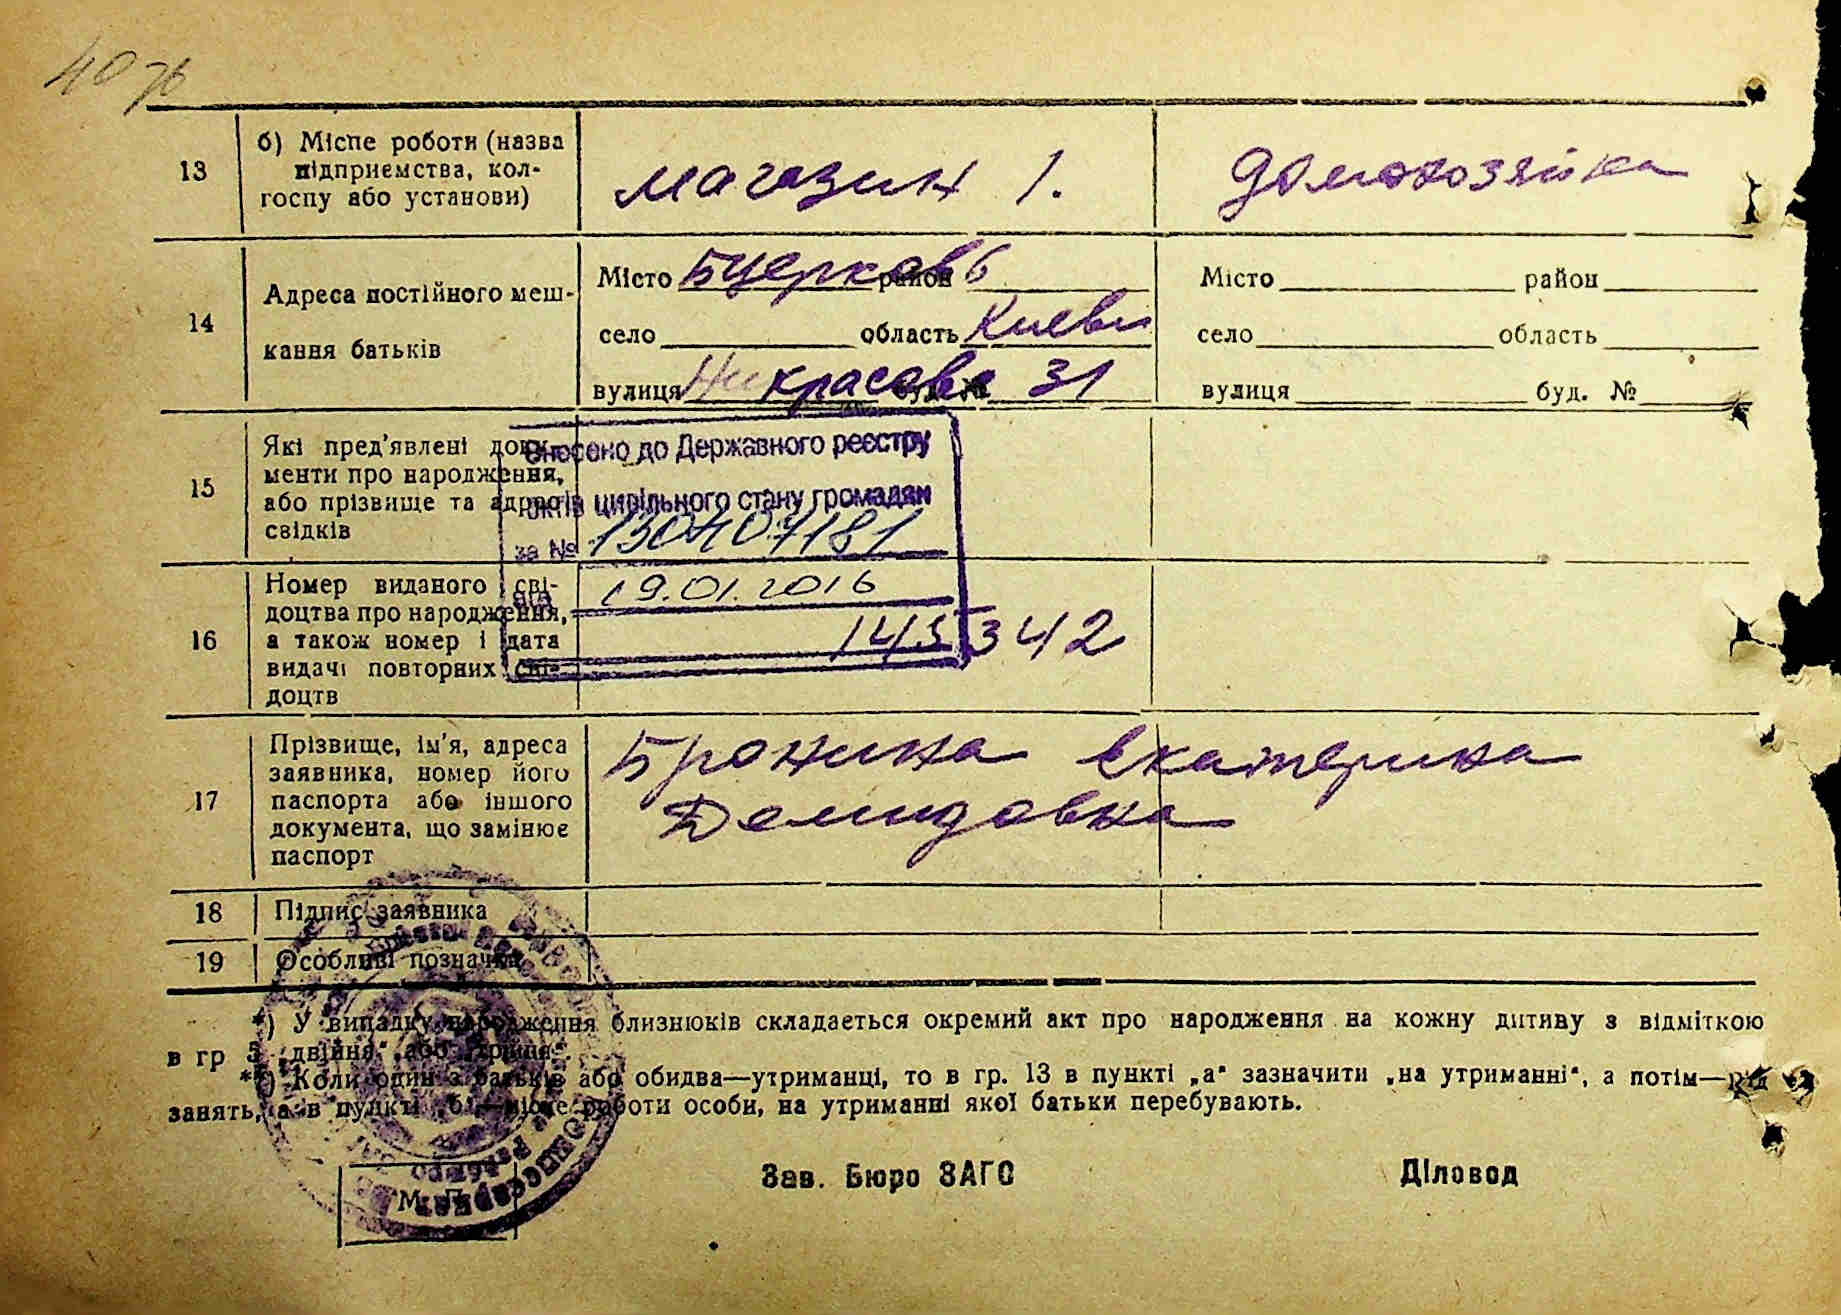 13
б) Місце роботи (назва
підприємства, кол-
госпу або установи)
магазин 1.
домохозяйка
14
Адреса постійного меш-
кання батьків
Місто Бцерковь район
село область Киевс
вулиця Никрасова буд. № 31
Місто район
село область
вулиця буд. №
15
Які пред'явлені доку-
менти про народження,
або прізвище та адреса
свідків
Внесено до Державного реєстру
актів цивільного стану громадян
за № 130407181
від 19.01.2016
16
Номер виданого сві-
доцтва про народження,
а також номер і дата
видачі повторних сві-
доцтв
145342
17
Прізвище, ім'я, адреса
заявника, номер його
паспорта або іншого
документа, що замінює
паспорт
Бронина Екатерина
Демидовна
18
Підпис заявника
19
Особливі позначки
*) У випадку народження близнюків складається окремий акт про народження на кожну дитиву з відміткою
в гр 5 „двійня“ або „трійня“.
**) Коли один з батьків або обидва—утриманці, то в гр. 13 в пункті „а“ зазначити „на утриманні“, а потім—рід
занять, а в пункті „б“—місце роботи особи, на утриманні якої батьки перебувають.
Зав. Бюро ЗАГС
Діловод
М. П.